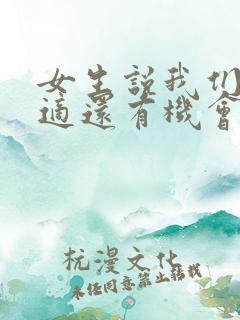 女生説我们
適還有機會
杭漫文化
未经同意禁止转载